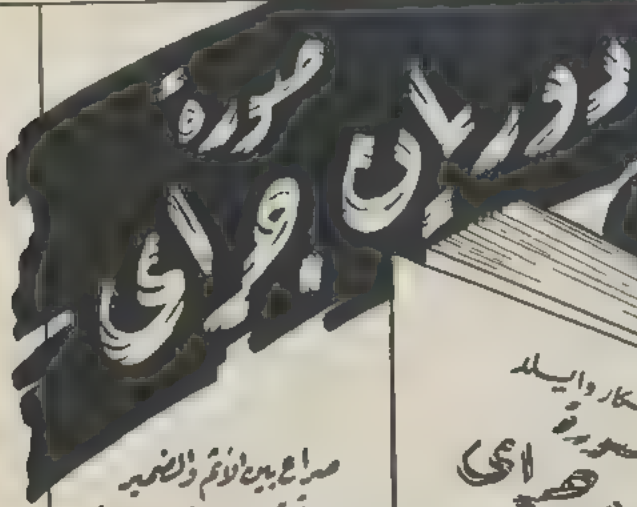 صورة
دوريان
جراي
سكار وايلد
صورة
صراع بين الاثم والضمير